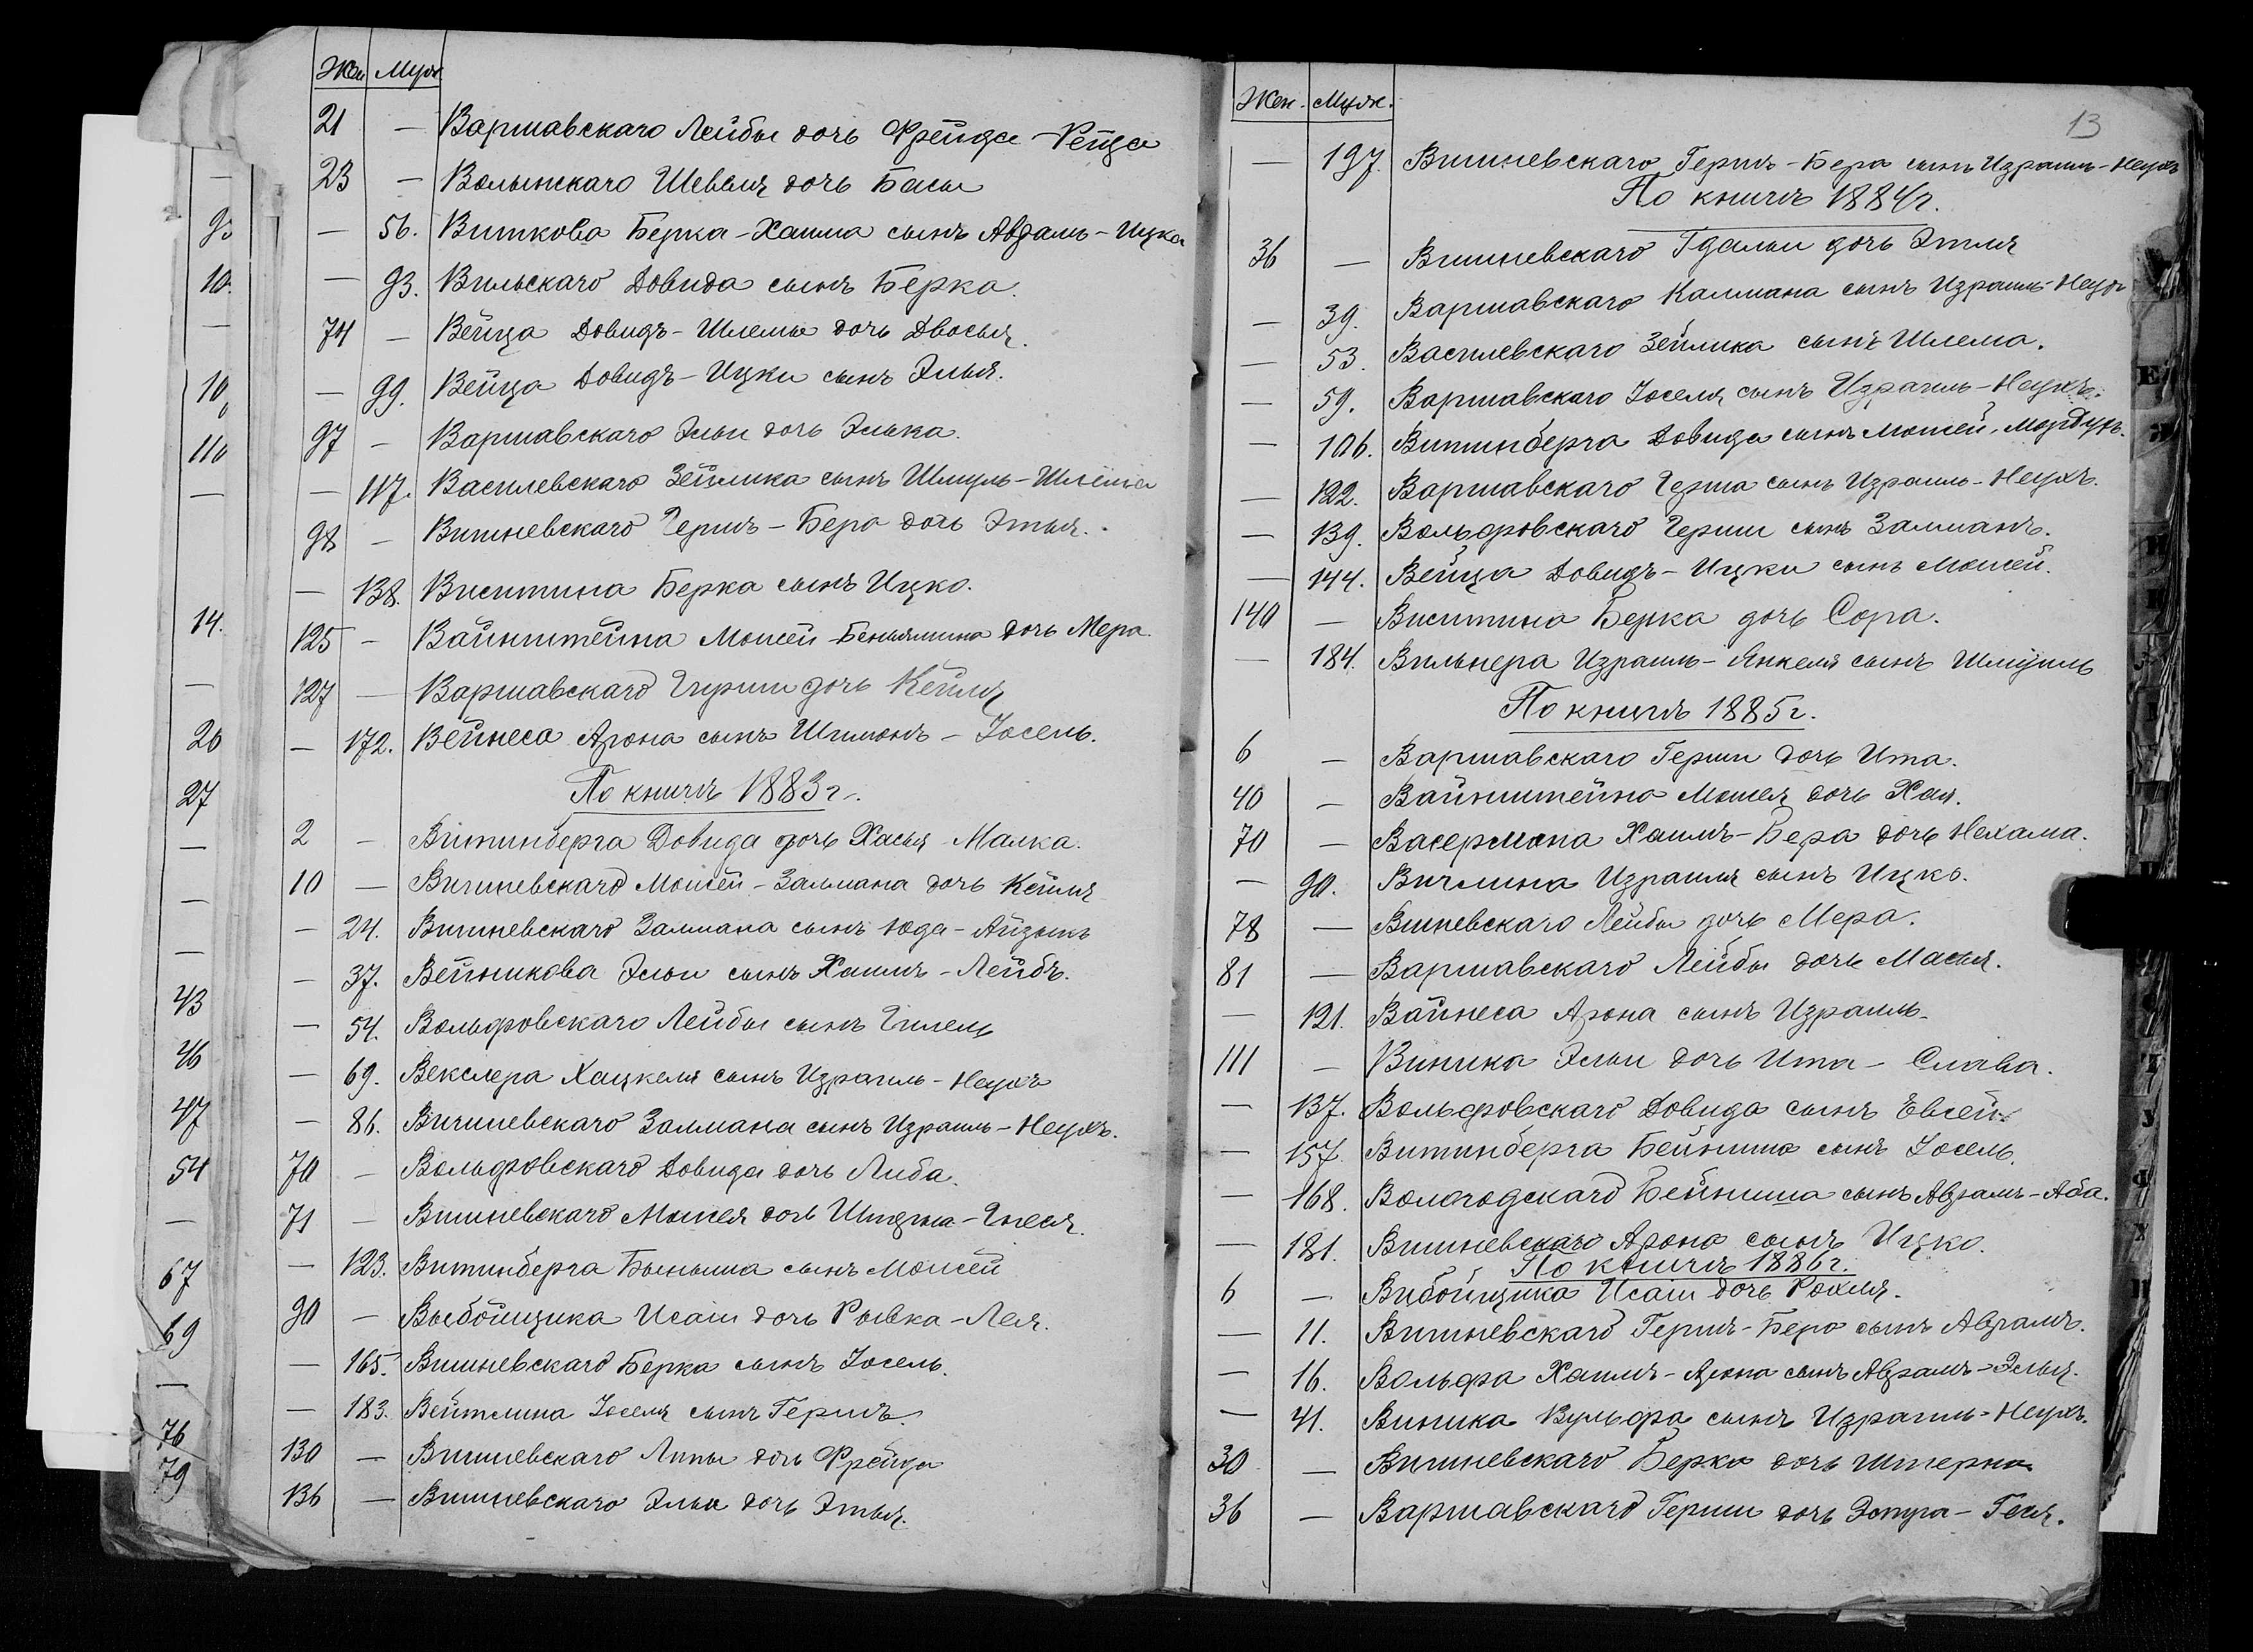 Жен Муж
21 — Варшавскаго Лейбы дочь Фрейда-Рейца
23 — Волынскаго Шевеля дочь Басы
— 56. Виткова Берка-Хаима сынъ Авраамъ-Ицка
— 93. Вильскаго Довида сынъ Берка.
74 — Вейца Довидъ-Шлемы дочь Двосья.
— 99. Вейца Довидъ-Ицки сынъ Элья.
97 — Варшавскаго Эльи дочь Элька.
— 117. Василевскаго Зейлика сынъ Шмуль-Шлема
98 — Вишневскаго Гершъ-Бера дочь Этья.
— 138. Виситина Берка сынъ Ицко.
125 — Вайнштейна Мошей-Беньямина дочь Мера.
127 — Варшавскаго Герши дочь Кейля
— 172. Вейнеса Арона сынъ Шимонъ-Іосель.
По книгѣ 1883 г.
2 — Витинберга Довида дочь Хасья-Малка.
10 — Вишневскаго Мошей-Залмана дочь Кейля
— 24. Вишневскаго Залмана сынъ Юда-Айзыкъ
— 37. Вейникова Эльи сынъ Хаимъ-Лейбъ.
— 54. Вольфовскаго Лейбы сынъ Гилель
— 69. Векслера Хацкеля сынъ Израиль-Неухъ
— 86. Вишневскаго Залмана сынъ Израиль-Неухъ.
70 — Вольфовскаго Довида дочь Либа.
71 — Вишневскаго Мошея дочь Гнеся.
— 123. Витинберга Быныша сынъ Мошей
90 — Выбойщика Исаіи дочь Рывка-Лея.
— 165. Вишневскаго Берка сынъ Іосель.
— 183. Вейтлина Іоселя сынъ Гершъ.
130 — Вишневскаго Липы дочь Фрейда
136 — Вишневскаго Эльи дочь Этья.
93
10.
—
10
110
—
14.
—
26
27
—
—
—
43
46
47
54
—
67
69
—
76
79
13
Жен. Муж.
— 197. Вишневскаго Гершъ-Бера сынъ Израиль-Неухъ
По книгѣ 1884 г.
36 — Вишневскаго Гдальи дочь Этля
— 39. Варшавскаго Калмана сынъ Израиль-Неухъ
— 53. Василевскаго Зейлика сынъ Шлема.
— 59. Варшавскаго Іоселя сынъ Израиль-Неухъ.
— 106. Витинберга Довида сынъ Мошей-Мордухъ.
— 122. Варшавскаго Герша сынъ Израиль-Неухъ.
— 139. Вольфовскаго Герши сынъ Залманъ.
— 144. Вейца Довидъ-Ицки сынъ Мошей.
140 — Виситина Берка дочь Сора.
— 184. Вильнера Израиль-Янкеля сынъ Шмуиль
По книгѣ 1885 г.
6 — Варшавскаго Герши дочь Ита.
40 — Вайнштейна Мошея дочь Хая.
70 — Васермана Хаимъ-Бера дочь Нехама.
— 90. Вичлина Израиля сынъ Ицко.
78 — Вишевскаго Лейбы дочь Мера.
81 — Варшавскаго Лейбы дочь Масья.
— 121. Вайнеса Арона сынъ Израиль.
111 — Виника Эльи дочь Ита-Слава.
— 137. Вольфовскаго Довида сынъ Евсей.
— 157. Витинберга Бейниша сынъ Іосель.
— 168. Вологодскаго Бейниша сынъ Авраамъ-Аба.
— 181. Вишневскаго Арона сынъ Ицко.
По книгѣ 1886 г.
6 — Выбойщика Исаіи дочь Рохля.
— 11. Вишневскаго Гершъ-Беро сынъ Авраамъ.
— 16. Вольфа Хаимъ-Арона сынъ Авраамъ-Элья.
— 41. Виника Вульфа сынъ Израиль-Неухъ.
30 — Вишневскаго Берка дочь Штерна
36 — Варшавскаго Герши дочь Эстра-Геня.